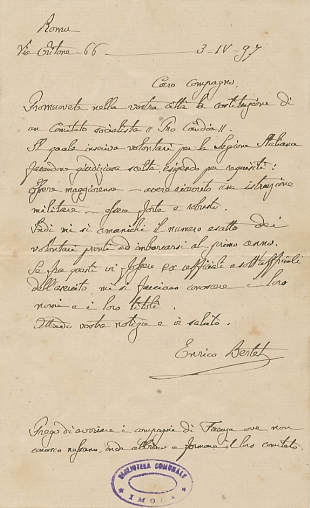 Roma
Via Critone 66 — 3 IV 97
Caro Compagno.
Promuovete nella vostra città la costituzione di
un Comitato socialista "Pro Candia".
Il quale inscriva volontari per la Legione Italiana
facendone giudiziosa scelta, esigendo per requisiti:
essere maggiorenne – avere ricevuto una istruzione
militare – essere forte e robusto.
Indi mi si comunichi il numero esatto dei
volontari pronti ad imbarcarsi al primo cenno.
Se fra questi vi fossero ex ufficiali o sott'ufficiali
dell'esercito, mi si facciano conoscere i loro
nomi e i loro titoli.
Attendo vostre notizie e vi saluto.
Enrico
Prego di avvisare i compagni di Faenza ove non
conosco nessuno, onde abbiano a formare il loro comitato.
BIBLIOTECA COMUNALE
IMOLA